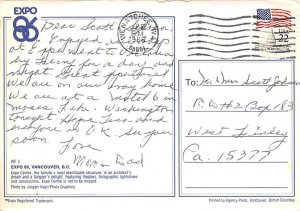 EXPO
86
Dear Scott
Enjoyed
at Expo went to
day for a day and
night Great Spectacul
We are on our way home
We are at a motel 6 in
Moses Lake, Washington
tonight Hope Tara and
everyone is O.K. See you
soon
Love
Mom & Dad
WENATCHEE, WA
PM
1986
USA
22
To:
Mr & Mrs Scott Johnson
R.D. #2 Box 183
West Finley
Pa. 15377
WF 2
EXPO 86, VANCOUVER, B.C.
Expo Centre, the fair site's most identifiable structure, is an architect's
dream and a Fangor's delight. Featuring theatres, holographic exhibitions
and concessions. Expo Centre is not to be missed.
Photo by Jurgen Vogt/Photo Graphics
*Expo Registered Trademark
Printed and Produced by Agency Press, Vancouver, British Columbia